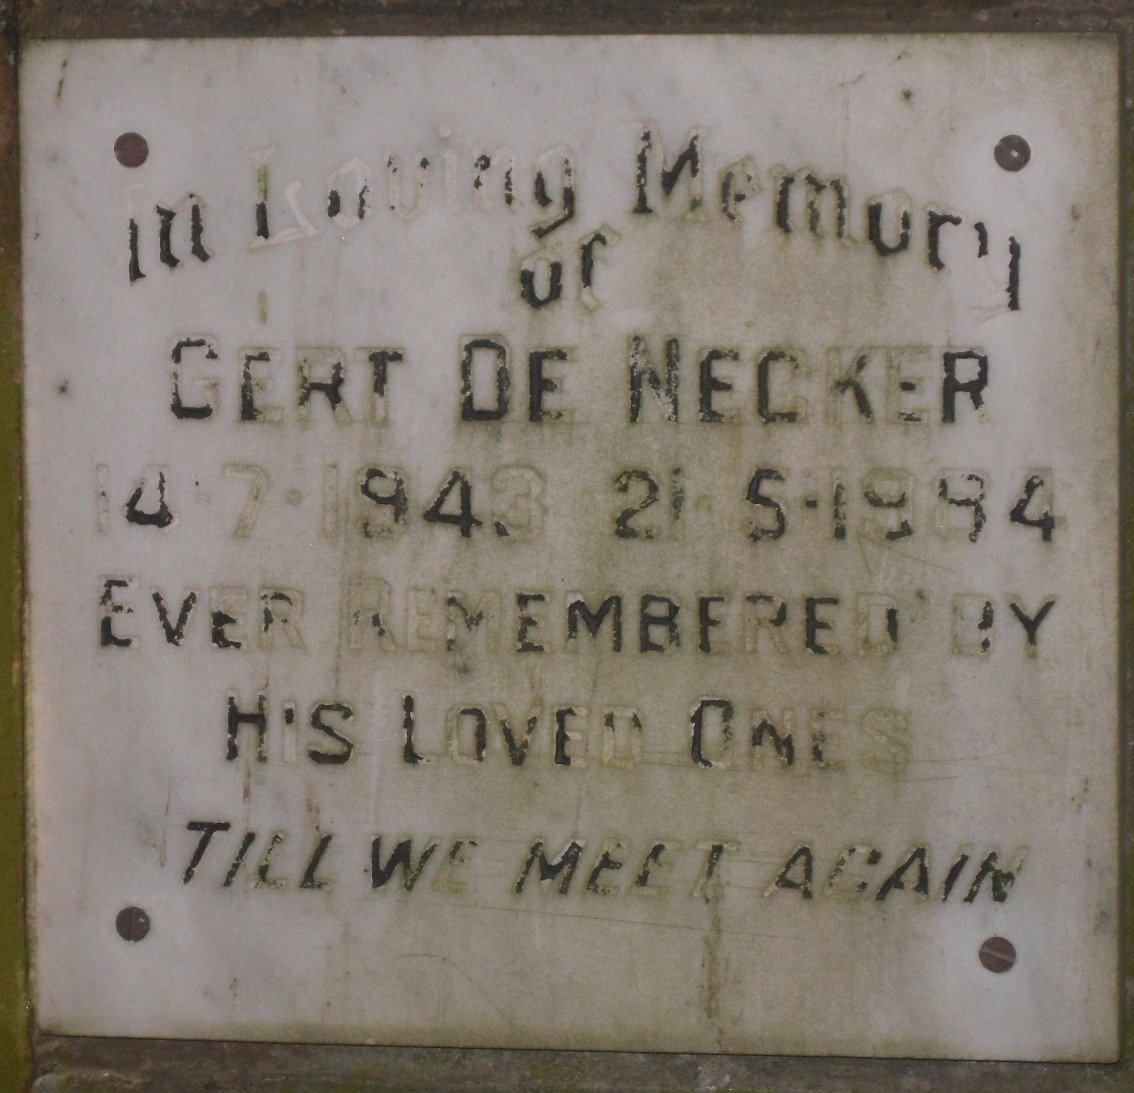 In Loving Memory
of
GERT DE NECKER
14·7·1943 21·5·1984
EVER REMEMBERED BY
HIS LOVED ONES
TILL WE MEET AGAIN